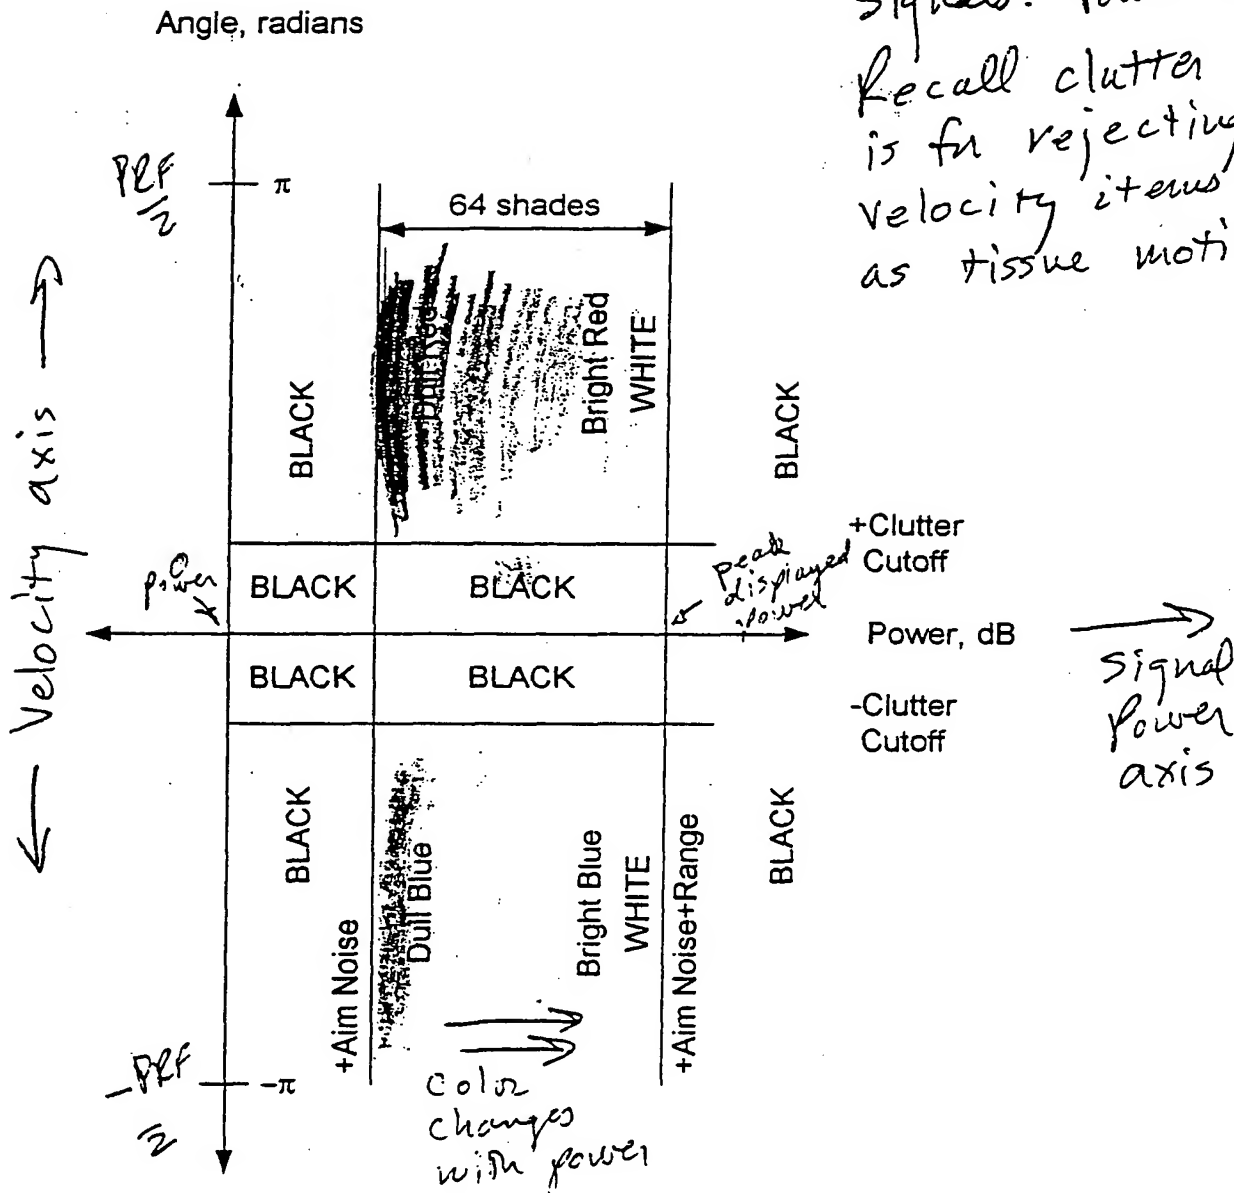 Angle, radians
signals.
Recall clutter
is for rejecting
velocity items
as tissue moti
PRF
2
π
64 shades
Dull Red
Bright Red
WHITE
BLACK
BLACK
Velocity axis
+Clutter
Cutoff
0
power
BLACK
BLACK
peak
displayed
power
Power, dB
Signal
Power
axis
BLACK
BLACK
-Clutter
Cutoff
BLACK
+Aim Noise
Dull Blue
Bright Blue
WHITE
+Aim Noise+Range
BLACK
-PRF
2
-π
Color
changes
with power